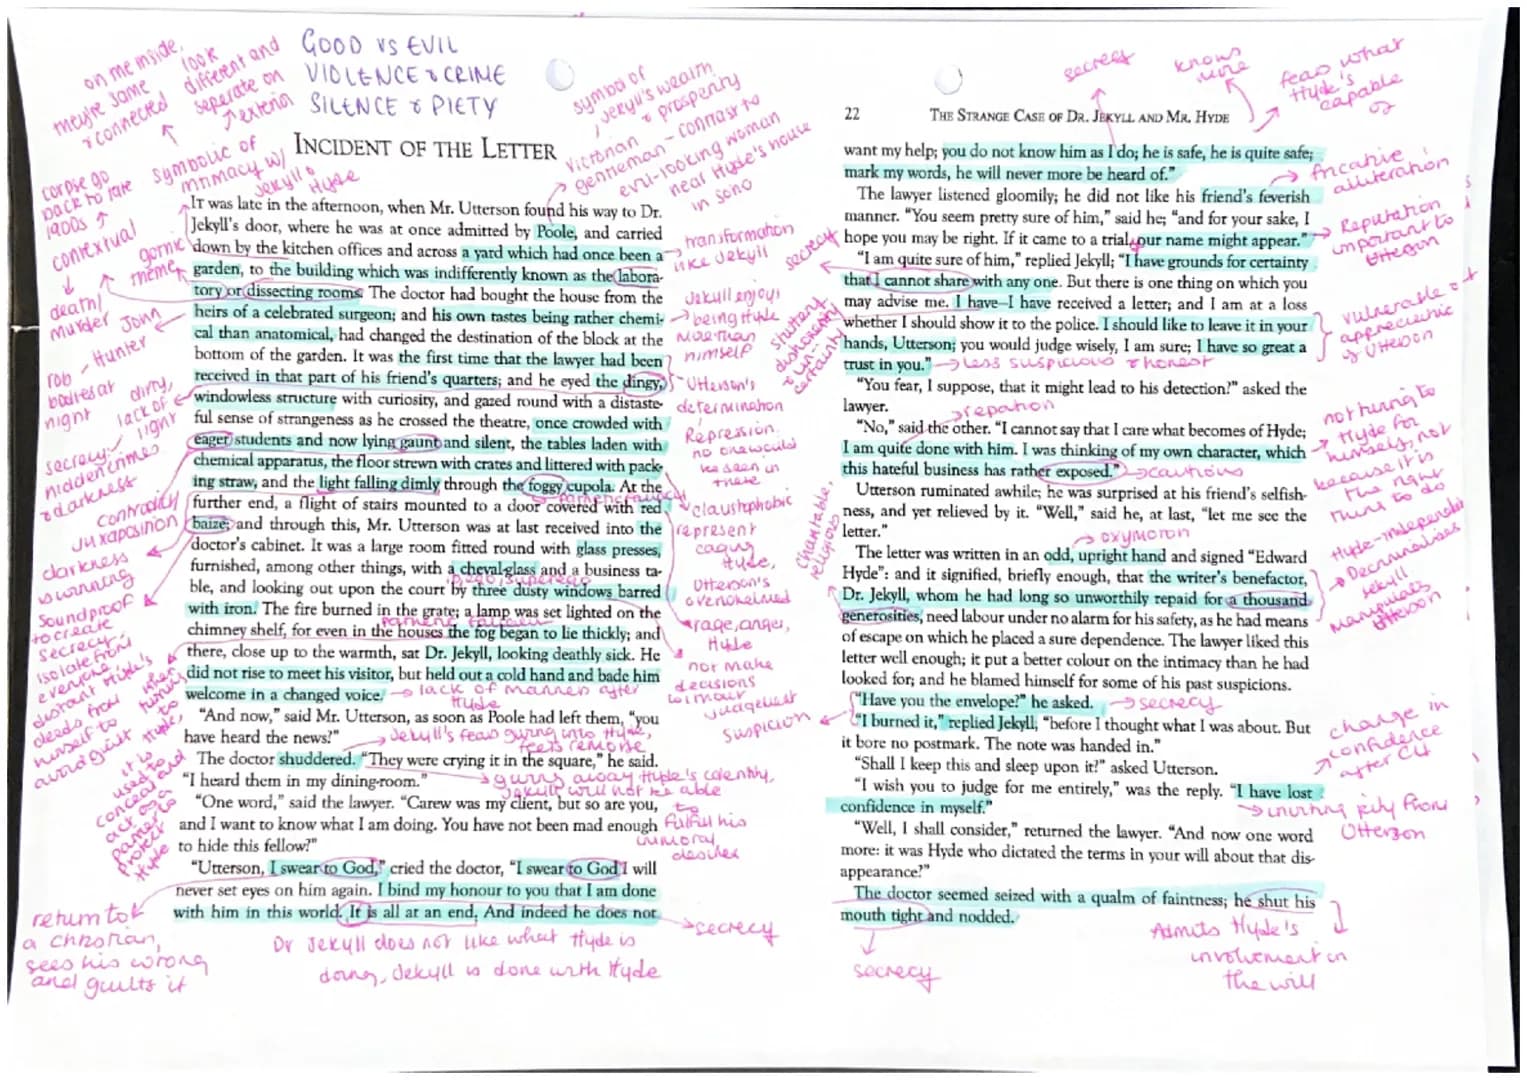 GOOD VS EVIL
VIOLENCE & CRIME
SILENCE & PIETY
on the inside,
they're same
& connected
look
different and
seperate on
exterior
symbolic of
intimacy w/
Jekyll &
Hyde
symbol of
Jekyll's wealth
& prosperity
Victorian
gentleman - contrast to
evil-looking woman
near Hyde's house
in soho
corpse go
back to late
1900s
contextual
gothic
theme
death/
murder
John
Hunter
rob
bodies at
night
dirty,
lack of
light
secrecy/
hidden crimes
& darkness
contradict/
Juxtaposition
darkness
is winning
Soundproof
to create
secrecy,
isolate from
everyone
distant Hyde's
deeds from
himself to
avoid guilt
it is
used to
conceal and
act as a
barrier to
protect
Hyde
return to
a christian,
sees his wrong
and guilts it
INCIDENT OF THE LETTER
IT was late in the afternoon, when Mr. Utterson found his way to Dr.
Jekyll's door, where he was at once admitted by Poole, and carried
down by the kitchen offices and across a yard which had once been a
garden, to the building which was indifferently known as the labora-
tory or dissecting rooms. The doctor had bought the house from the
heirs of a celebrated surgeon; and his own tastes being rather chemi-
cal than anatomical, had changed the destination of the block at the
bottom of the garden. It was the first time that the lawyer had been
received in that part of his friend's quarters; and he eyed the dingy,
windowless structure with curiosity, and gazed round with a distaste-
ful sense of strangeness as he crossed the theatre, once crowded with
eager students and now lying gaunt and silent, the tables laden with
chemical apparatus, the floor strewn with crates and littered with pack-
ing straw, and the light falling dimly through the foggy cupola. At the
further end, a flight of stairs mounted to a door covered with red
baize; and through this, Mr. Utterson was at last received into the
doctor's cabinet. It was a large room fitted round with glass presses,
furnished, among other things, with a cheval-glass and a business ta-
ble, and looking out upon the court by three dusty windows barred
with iron. The fire burned in the grate; a lamp was set lighted on the
chimney shelf, for even in the houses the fog began to lie thickly; and
there, close up to the warmth, sat Dr. Jekyll, looking deathly sick. He
did not rise to meet his visitor, but held out a cold hand and bade him
welcome in a changed voice.
"And now," said Mr. Utterson, as soon as Poole had left them, "you
have heard the news?"
The doctor shuddered. "They were crying it in the square," he said.
"I heard them in my dining-room."
"One word," said the lawyer. "Carew was my client, but so are you,
and I want to know what I am doing. You have not been mad enough
to hide this fellow?"
"Utterson, I swear to God," cried the doctor, "I swear to God I will
never set eyes on him again. I bind my honour to you that I am done
with him in this world. It is all at an end. And indeed he does not
transformation
like Jekyll
Jekyll enjoys
being Hyde
more than
himself
Utterson's
determination
Repression.
no one would
be seen in
there
pathetic fallacy
claustrophobic
represent
caging
Hyde,
Utterson's
overwhelmed
id, ego, superego
pathetic fallacy
rage, anger,
Hyde
not make
decisions
without
judgement
lack of manners after
Hyde
suspicion
Jekyll's fears going into Hyde,
feels remorse
giving away Hyde's identity,
Jekyll will not be able
to
fulfil his
immoral
desires
secrecy
Dr Jekyll does not like what Hyde is
doing, Jekyll is done with Hyde
22
THE STRANGE CASE OF DR. JEKYLL AND MR. HYDE
secrecy
knows
more
fears what
Hyde's
capable
of
want my help; you do not know him as I do; he is safe, he is quite safe;
mark my words, he will never more be heard of."
The lawyer listened gloomily; he did not like his friend's feverish
manner. "You seem pretty sure of him," said he; "and for your sake, I
hope you may be right. If it came to a trial, your name might appear."
"I am quite sure of him," replied Jekyll; "I have grounds for certainty
that I cannot share with any one. But there is one thing on which you
may advise me. I have—I have received a letter; and I am at a loss
whether I should show it to the police. I should like to leave it in your
hands, Utterson; you would judge wisely, I am sure; I have so great a
trust in you."
"You fear, I suppose, that it might lead to his detection?" asked the
lawyer.
"No," said the other. "I cannot say that I care what becomes of Hyde;
I am quite done with him. I was thinking of my own character, which
this hateful business has rather exposed."
Utterson ruminated awhile; he was surprised at his friend's selfish-
ness, and yet relieved by it. "Well," said he, at last, "let me see the
letter."
The letter was written in an odd, upright hand and signed "Edward
Hyde": and it signified, briefly enough, that the writer's benefactor,
Dr. Jekyll, whom he had long so unworthily repaid for a thousand
generosities, need labour under no alarm for his safety, as he had means
of escape on which he placed a sure dependence. The lawyer liked this
letter well enough; it put a better colour on the intimacy than he had
looked for; and he blamed himself for some of his past suspicions.
"Have you the envelope?" he asked.
"I burned it," replied Jekyll, "before I thought what I was about. But
it bore no postmark. The note was handed in."
"Shall I keep this and sleep upon it?" asked Utterson.
"I wish you to judge for me entirely," was the reply. "I have lost
confidence in myself."
"Well, I shall consider," returned the lawyer. "And now one word
more: it was Hyde who dictated the terms in your will about that dis-
appearance?"
The doctor seemed seized with a qualm of faintness; he shut his
mouth tight and nodded.
fricative
alliteration
Reputation
important to
Utterson
secrecy
stuttering
dishonesty
& un-
certainty
vulnerable &
appreciative
of Utterson
less suspicious & honest
repetition
not turning to
Hyde for
himself, not
because it is
the right
thing to do
cautious
oxymoron
charitable,
religious
Hyde - independent
Decriminalises
Jekyll
manipulates
Utterson
secrecy
change in
confidence
after C4
inviting pity from
Utterson
Admits Hyde's
involvement in
the will
secrecy